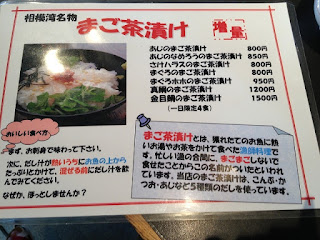 相模湾名物
まご茶漬け
増量
あじのまご茶漬け 800円
あじのなめろうのまご茶漬け 850円
さけハラスのまご茶漬け 800円
まぐろのまご茶漬け 800円
まぐろホホのまご茶漬け 950円
真鯛のまご茶漬け 1200円
金目鯛のまご茶漬け 1500円
(一日限定4食)
おいしい食べ方
まず、お刺身で味わって下さい。
次に、だし汁が熱いうちにお魚の上から
たっぷりとかけて、混ぜる前にだし汁を飲
んでみてください。
なぜか、ほっとしませんか?
まご茶漬けとは、獲れたてのお魚に熱
いお湯やお茶をかけて食べた漁師料理で
す。忙しい漁の合間に、まごまごしないで
食せたことからこの名前がついたといわれ
ています。当店のまご茶漬けは、こんぶ・か
つお・あじなど5種類のだしを使っています。